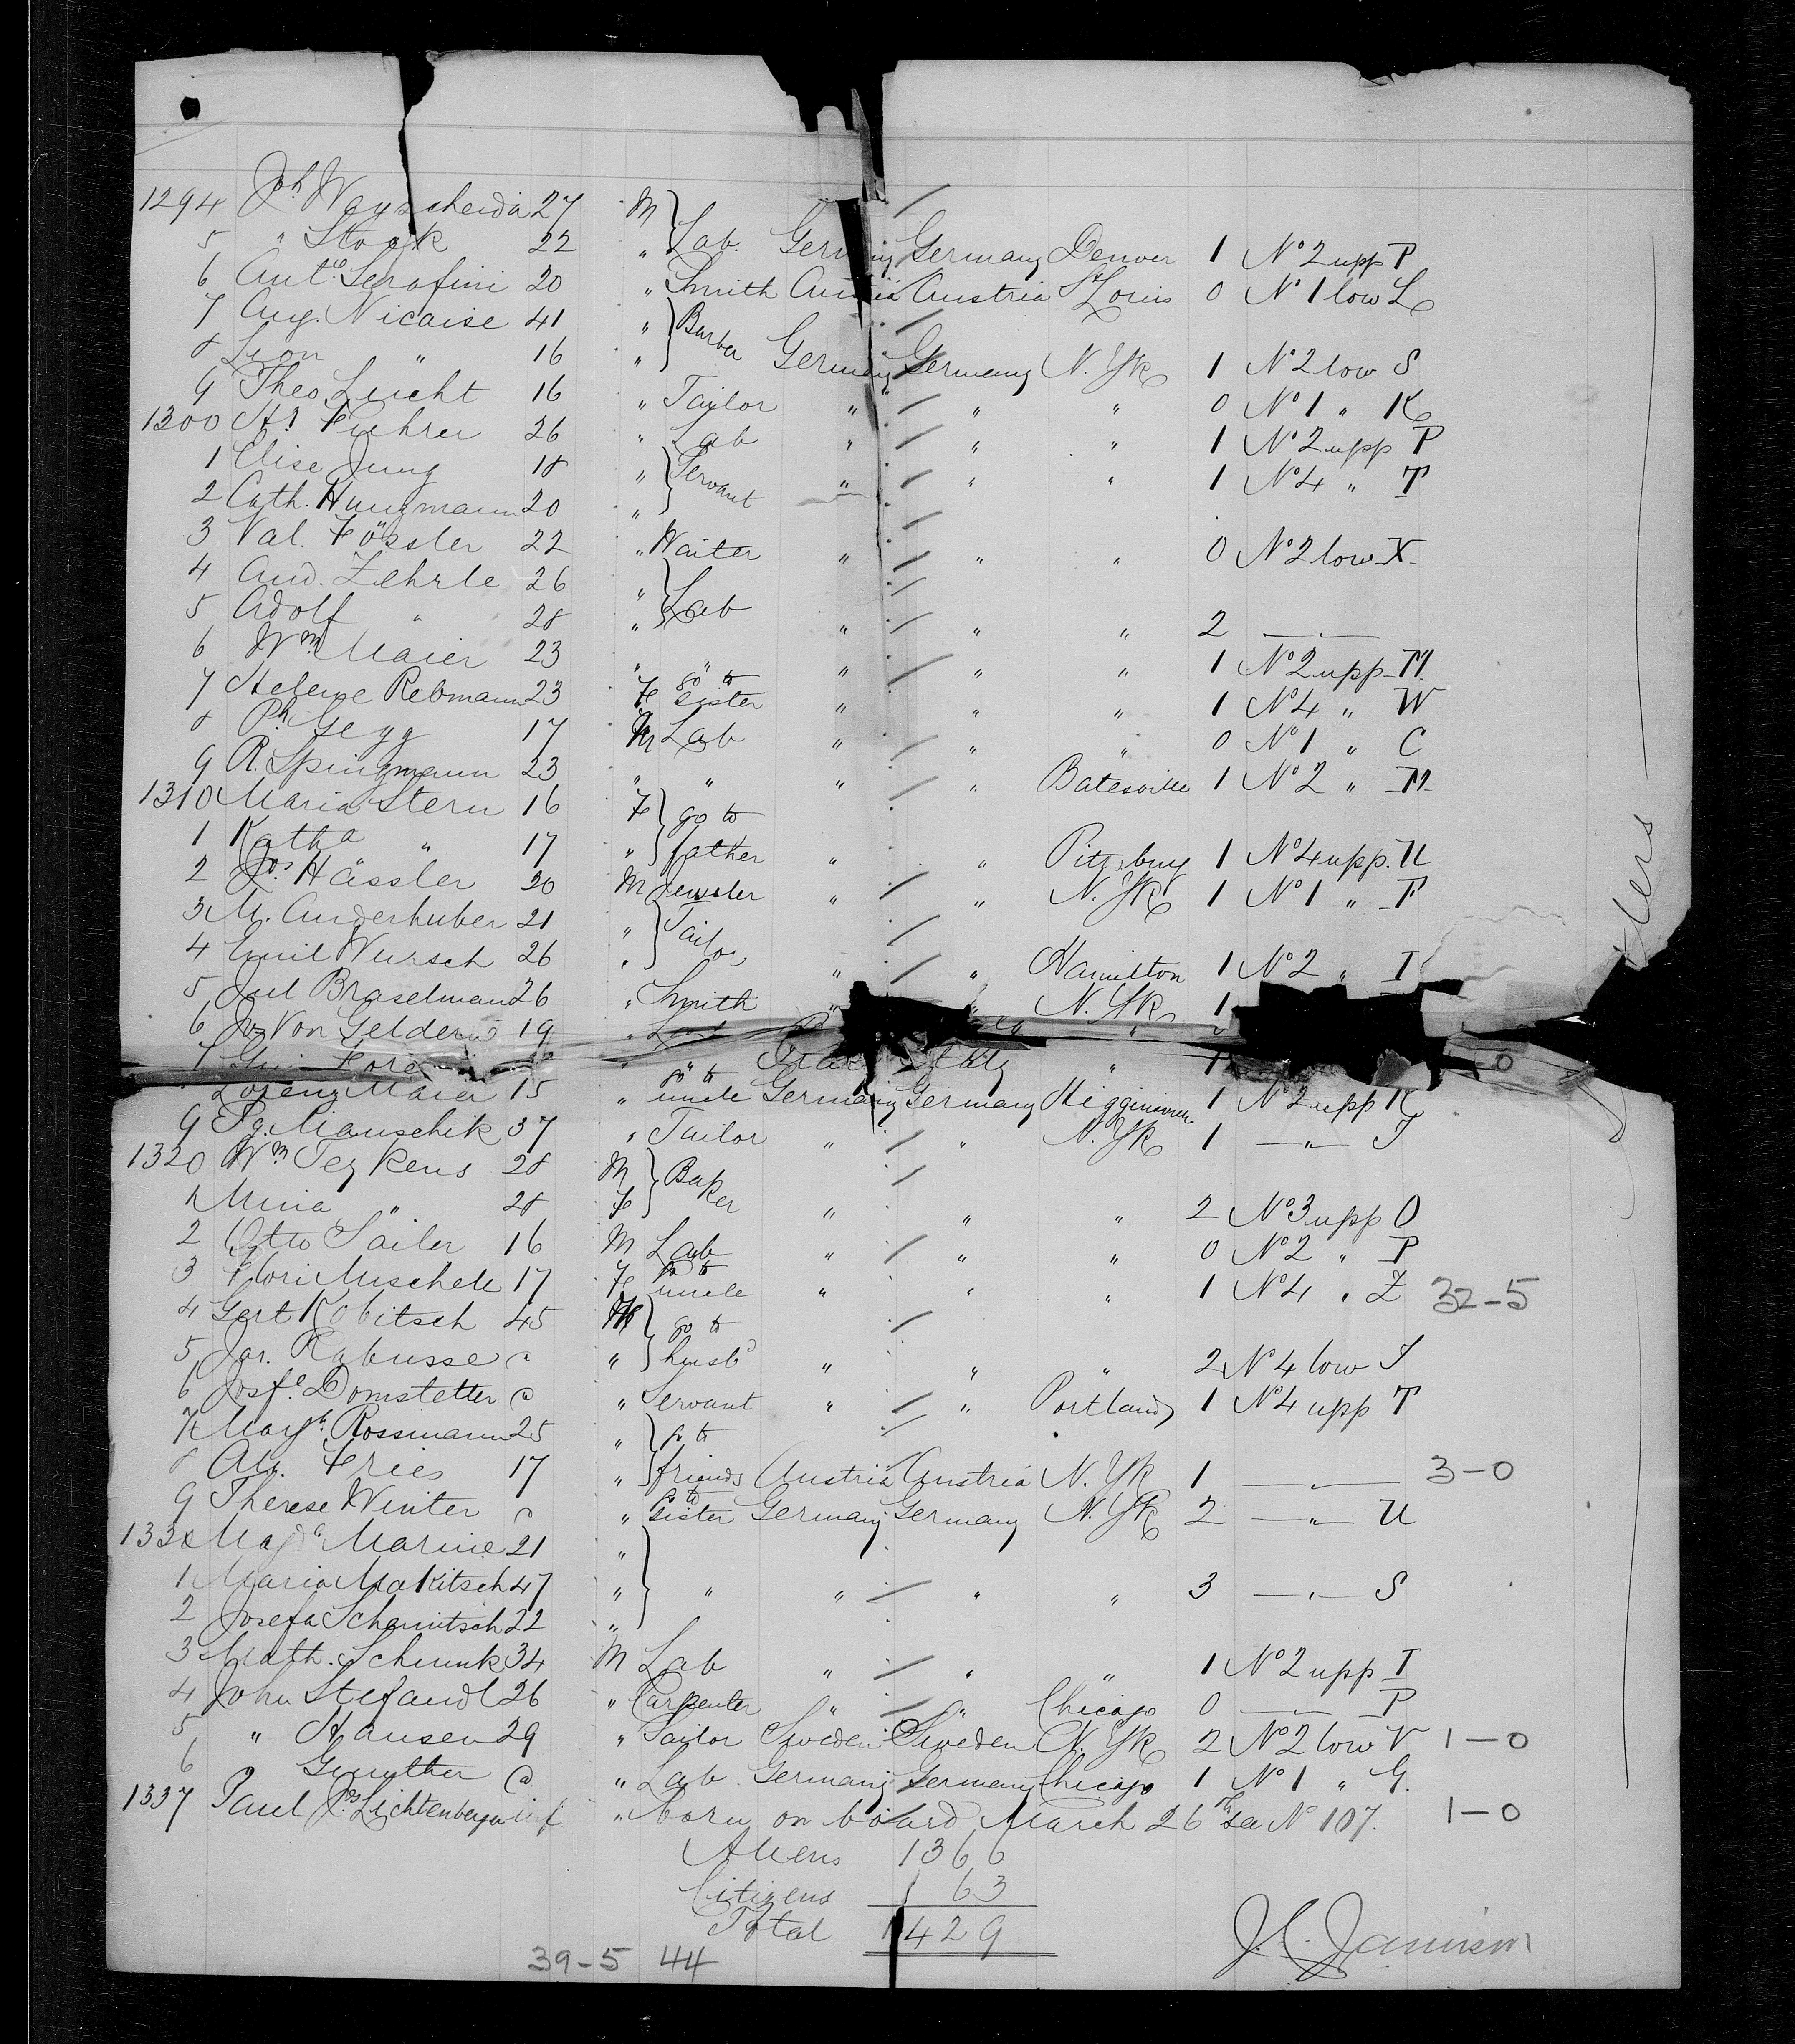 1294 Joh Wayscheida 27 M
5 " Stock 22 " Lab. Germany Germany Denver 1 No 2 upp P
6 Anto Serafini 20 " Smith Austria Austria St Louis 0 No 1 low L
7 Aug. Nicaise 41 " Barber
8 Leon " 16 " Germany Germany N. Yk 1 No 2 low S
9 Theo Leicht 16 " Tailor " " " 0 No 1 " K
1300 Fuhrer 26 " Lab " " " 1 No 2 upp P
1 Elise Jung 18 " Servant " " " 1 No 4 " T
2 Cath. Hungmann 20 "
3 Val. Fössler 22 " Waiter " " " 0 No 2 low X
4 And. Zehrle 26 " Lab
5 Adolf " 28 " " " " 2 — " —
6 Wm Maier 23 " " " " " 1 No 2 upp M
7 Helene Rebmann 23 F go to sister " " " 1 No 4 " W
8 Ph Gegg 17 M Lab " " " 0 No 1 " C
9 R. Springmann 23 " " " " Batesville 1 No 2 " M
1310 Maria Stern 16 F go to
1 Katha " 17 " father " " Pittsburg 1 No 4 upp. U
2 Jos Hässler 20 M Jeweler " " N. Yk 1 No 1 " F
3 M. Anderhuber 21 " Tailor
4 Emil Wursch 26 " " " Hamilton 1 No 2 " I
5 Jul Braselman 26 " Smith " N. Yk 1
6 Jos Von Geldern 19 "
7
Lorenz Maier 15 " go to uncle Germany Germany 1 No 2 upp K
9 Pg. Mauschik 37 " Tailor " " N. Yk 1 — " — I
1320 Wm Tegkens 28 M Baker
1 Mina " 28 F " " " 2 No 3 upp O
2 Otto Sailer 16 M Lab " " " 0 No 2 " P
3 Flori Muschele 17 F go to uncle " " " 1 No 4 " Z 32-5
4 Gert Kobitsch 45 go to
5 Jar. Rabusse " husbd " " " 2 No 4 low S
6 Josfe Domstetter " Servant " " Portland 1 No 4 upp T
7 Margh Rossmann 25 " go to
8 Fries 17 " friends Austria Austria N. Yk 1 — " — 3-0
9 Therese Winter " to sister Germany Germany N. Yk 2 — " — U
1330 Magda Marine 21 "
1 Maria Makitsch 47 " " " " " 3 — " — S
2 Josefa Schamitsch 22 "
3 Math. Schunk 34 M Lab " " " 1 No 2 upp I
4 John Stefandl 26 " Carpenter " " Chicago 0 — P
5 " Hansen 29 " Tailor Sweden Sweden N. Yk 2 No 2 low V 1-0
6 Gunther " Lab Germany Germany Chicago 1 No 1 " G.
1337 Paul Js Lichtenberger inf " born on board March 26th sa No 107. 1-0
Aliens 1366
Citizens 63
Total 1429
39-5 44